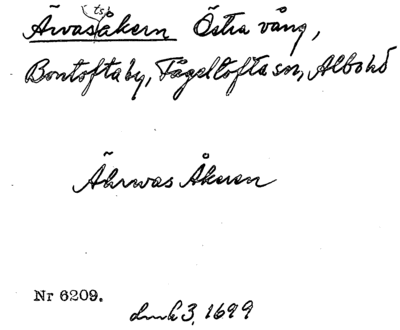 Ärvas(ts)åkern Östra vång,
Bontofta by, Fågeltofta sn, Albo hd
Ährwas Åkeren
Nr 6209.
3, 1699